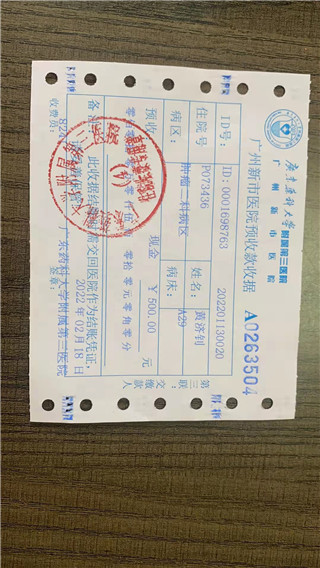 广东药科大学附属第三医院
广州新市医院
广州新市医院预收款收据 A0263504
ID号: ID:0001698763 202201130020
住院号 P073436 姓名: 黄济钊
病区: 肿瘤一科病区 病床: A29
预收: 现金 ￥500.00 元
零佰零拾零万零仟伍佰零拾零元零角零分
备注: 此收据结账时需交回医院作为结账凭证,
请妥善保管。 2022年02月18日
收费员: 824 签章: 广东药科大学附属第三医院
第三联:交缴款人